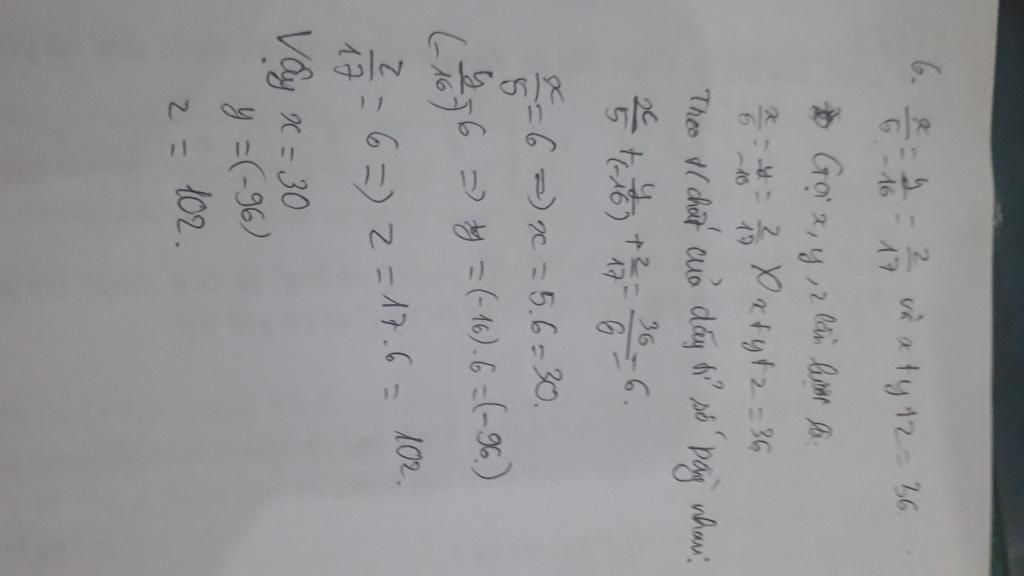 6. x/6 = y/-16 = z/17 và x + y + z = 36.
Gọi x, y, z lần lượt là
x/6 = y/-16 = z/17 x + y + z = 36
Theo t/chất của dãy tỉ số bằng nhau:
x/5 + y/(-16) + z/17 = 36/6 = 6.
x/5 = 6 => x = 5.6 = 30.
y/(-16) = 6 => y = (-16).6 = (-96)
z/17 = 6 => z = 17.6 = 102.
Vậy x = 30
y = (-96)
z = 102.